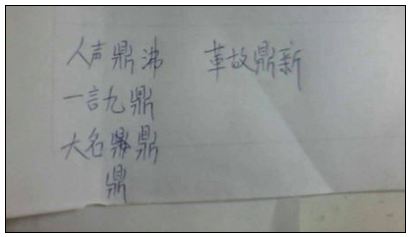 人声鼎沸 革故鼎新
一言九鼎
大名鼎鼎
鼎